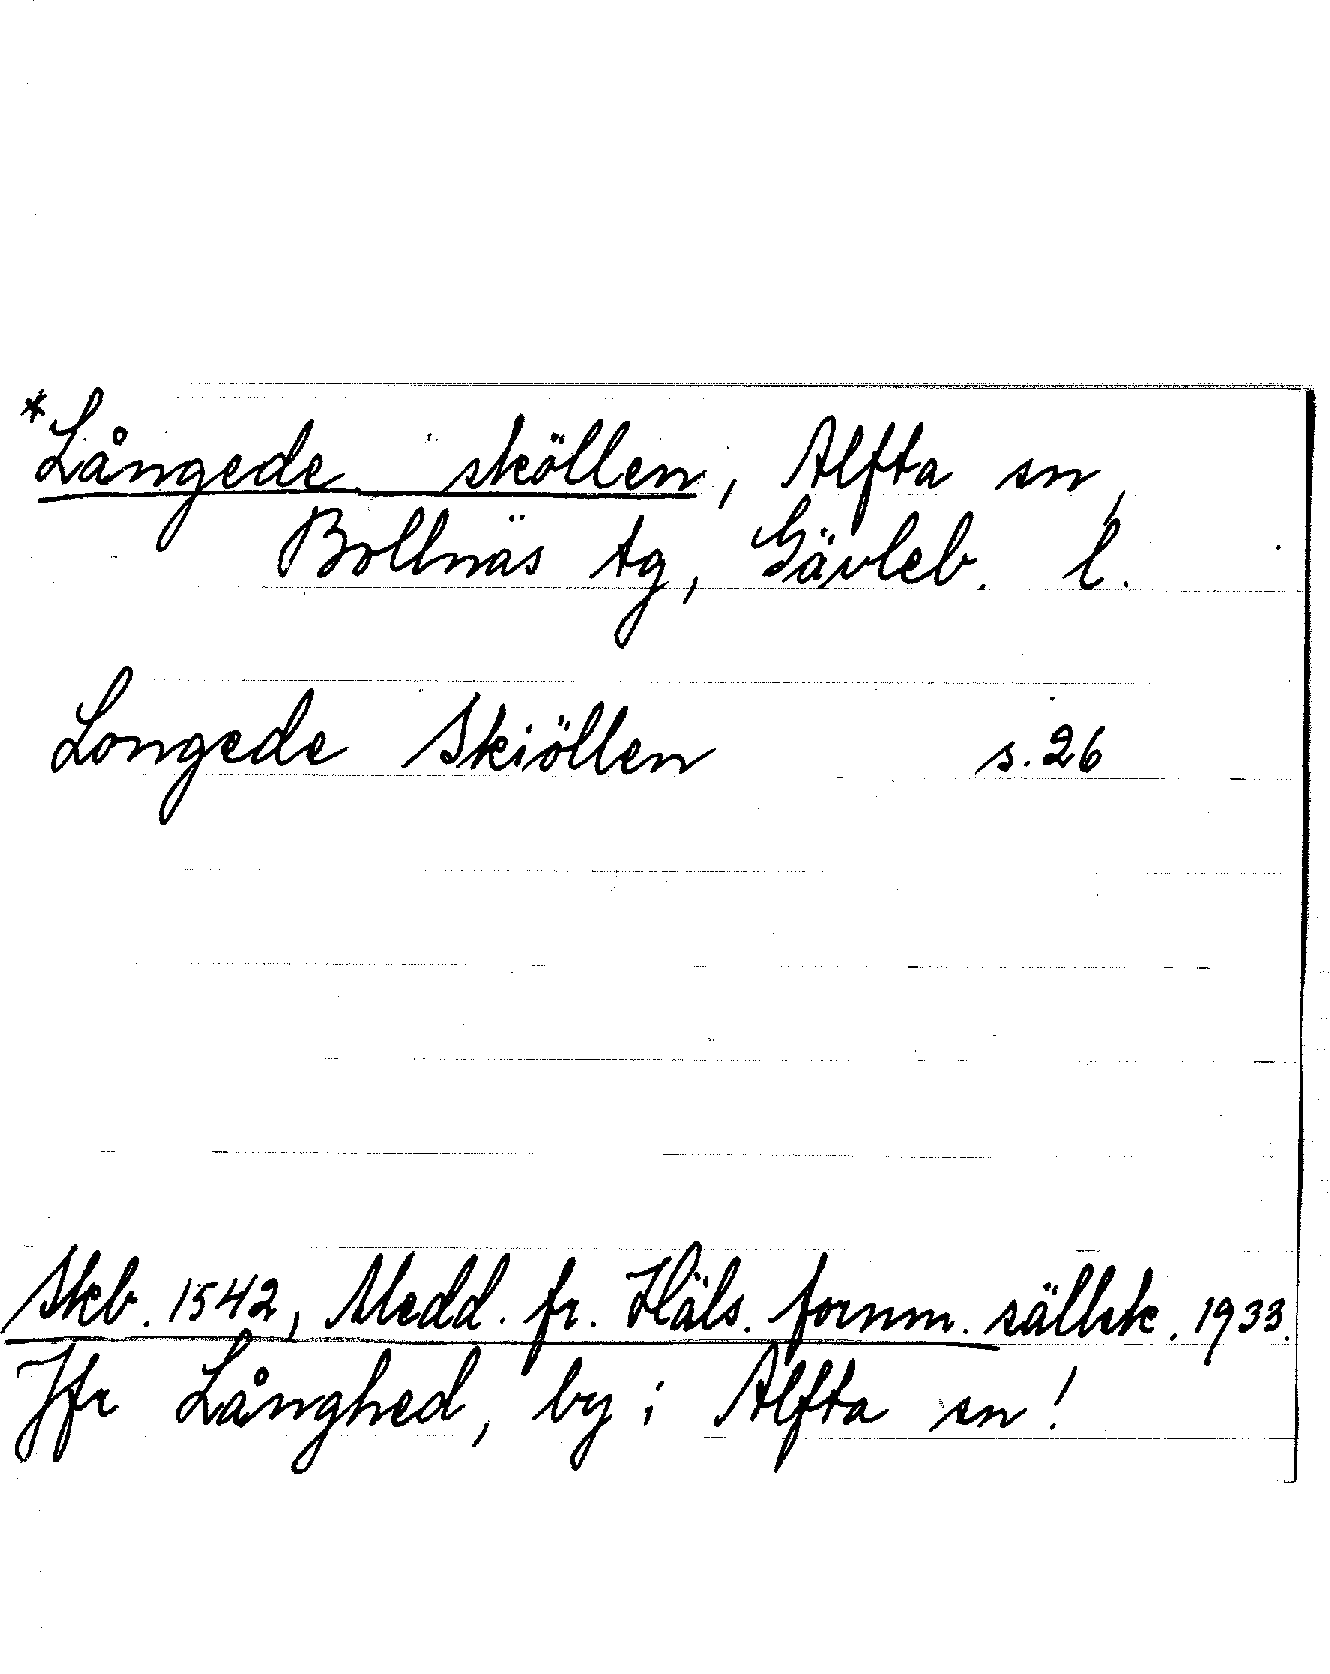 *Långede sköllen, Alfta sn,
Bollnäs tg, Gävleb. l.
Longede Skiöllen s. 26
Skb. 1542, Medd. fr. Häls. fornm. sällsk. 1933.
Jfr Långhed, by i Alfta sn!